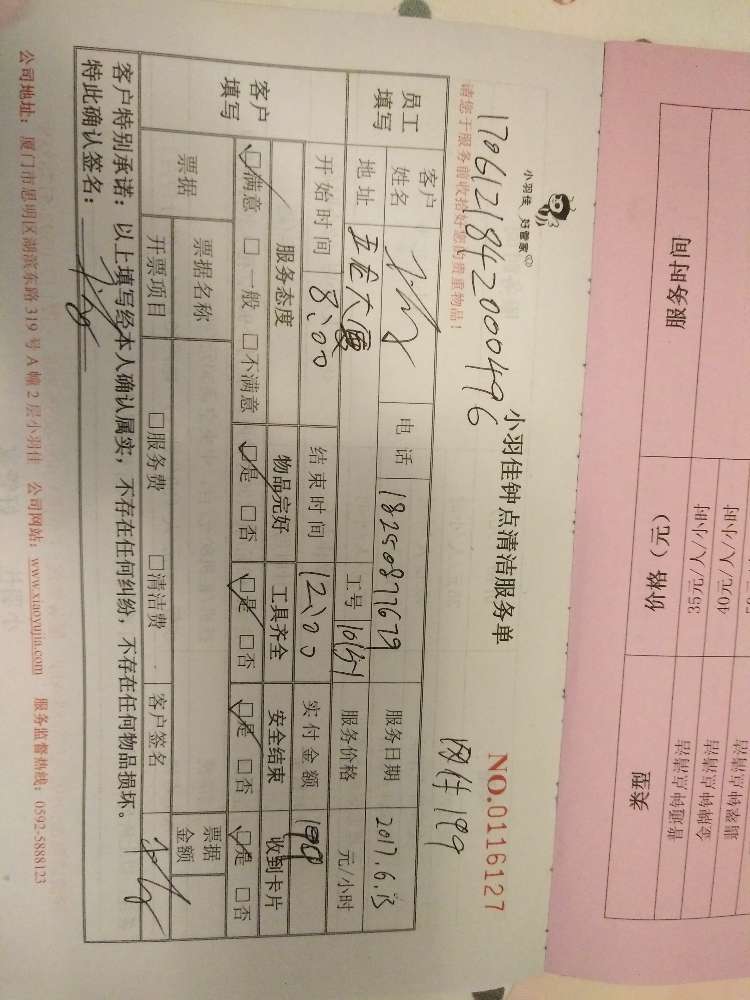 小羽佳 好管家
1706121842000496
请您于服务前收拾好您的贵重物品!
小羽佳钟点清洁服务单
NO.0116127
员工填写 客户姓名 电话 18250877679 服务日期 2017.6.13
地址 五龙大厦 工号 服务价格 元/小时
客户填写 开始时间 8:00 结束时间 12:00 实付金额
服务态度 物品完好 工具齐全 安全结束 收到卡片
□满意 □一般 □不满意 □是 □否 □是 □否 □是 □否 □是 □否
票据 票据名称 票据金额
开票项目 □服务费 □清洁费 客户签名
客户特别承诺:以上填写经本人确认属实,不存在任何纠纷,不存在任何物品损坏。
特此确认签名:
公司地址:厦门市思明区湖滨东路319号A幢2层小羽佳 公司网站:www.xiaoyujia.com 服务监督热线:0592-5888123
服务时间 价格(元) 类型
35元/人/小时 普通钟点清洁
40元/人/小时 金牌钟点清洁